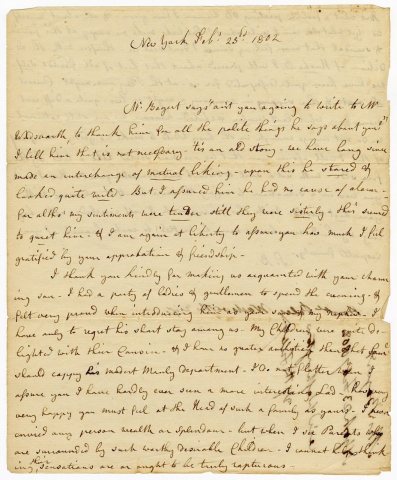 New York Feb. 25th 1802
Mr Bogert says aint you agoing to write to Mr
Wadsworth, to thank him for all the polite things he says about you
I tell him that is not necessary 'tis an old story - we have long since
made an interchange of mutual liking - upon this he stared &
looked quite wild - But I assured him he had no cause of alarm
for altho' my sentiments were tender still they were sisterly - this seemed
to quiet him - & I am again at liberty to assure you how much I feel
gratified by your approbation & friendship -
I thank you kindly for making us acquainted with your charm
ing son - I had a party of ladies & gentlemen to spend the evening - &
felt very proud when introducing him as my nephew - I
have only to regret his short stay among us - My Children were quite de-
lighted with their Cousin - & I have no greater ambition than that four
should coppy his modest Manly Deportment - I do not flatter when I
assure you I have hardly ever seen a more interesting Lad - how very
very happy you must feel at the Head of such a family as yours - I never
envied any person wealth or Splendour - but when I see Parents who
are surrounded by such worthy desirable Children - I cannot help think
ing their sensations are or ought to be truly rapturous -